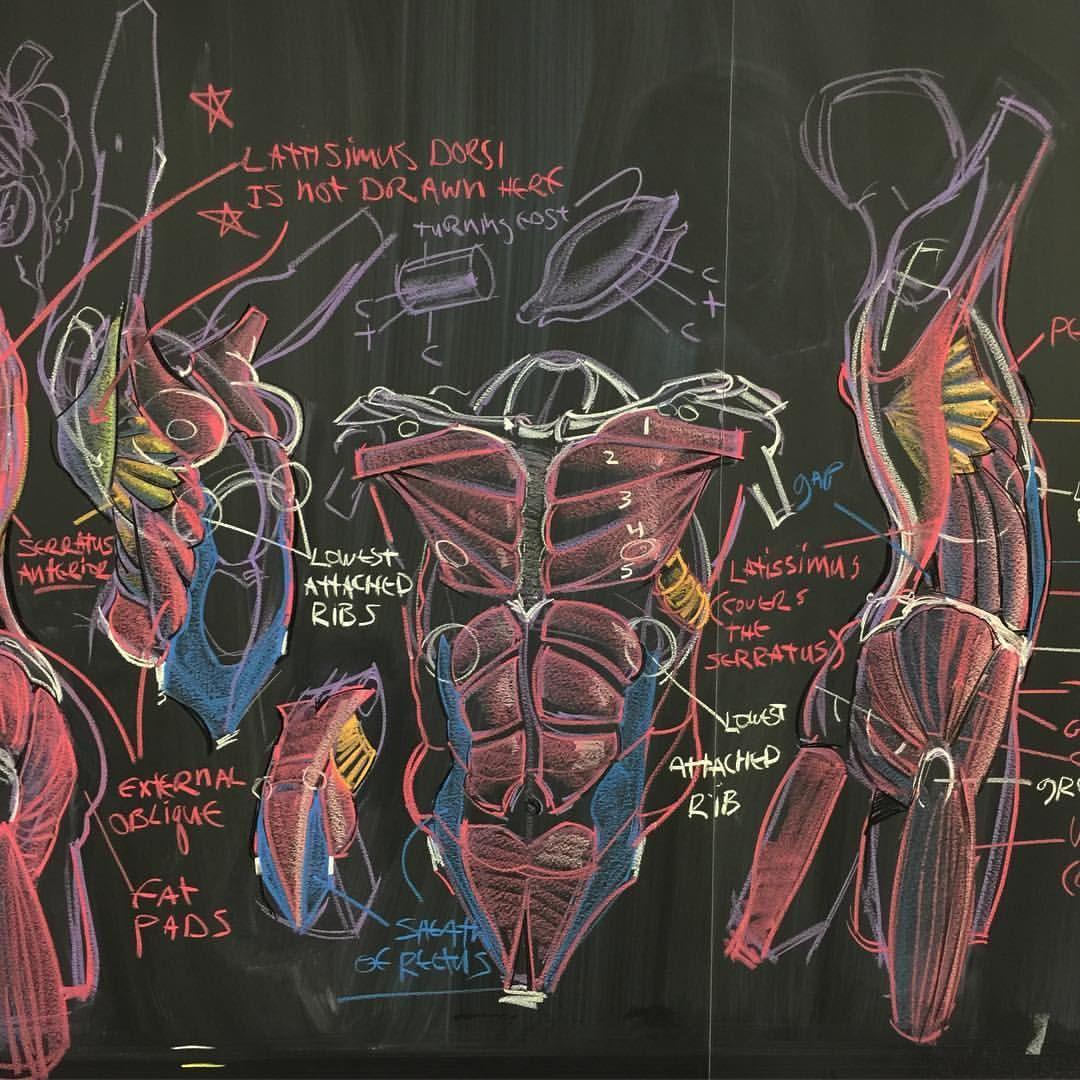 LATTISIMUS DORSI
IS NOT DRAWN HERE
turning east
C
+
C
C
+
C
PE
1
2
3
4
5
gAP
SERRATUS
ANTERIOR
LOWEST
ATTACHED
RIBS
LATISSIMUS
(COVERS
THE
SERRATUS)
LOWEST
ATTACHED
RIB
EXTERNAL
OBLIQUE
FAT
PADS
SHEATH
OF RECTUS
gRE